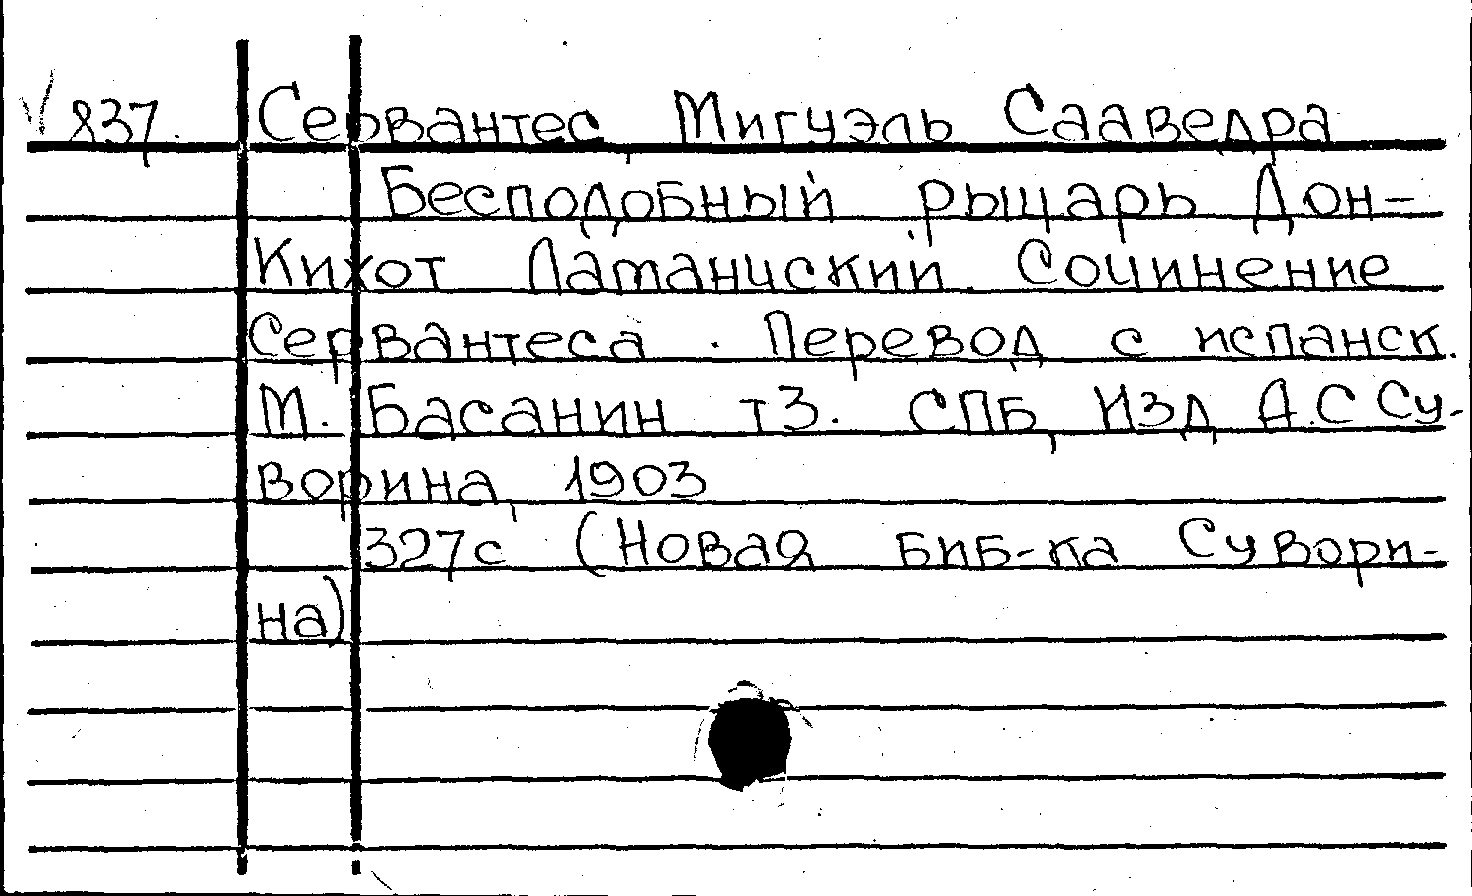 √ 837. Сервантес, Мигуэль Сааведра
Бесподобный рыцарь Дон-
Кихот Ламанчский. Сочинение
Сервантеса. Перевод с испанск.
М. Басанин т3. СПБ, Изд. А.С Су-
ворина, 1903
327с (Новая биб-ка Сувори-
на)